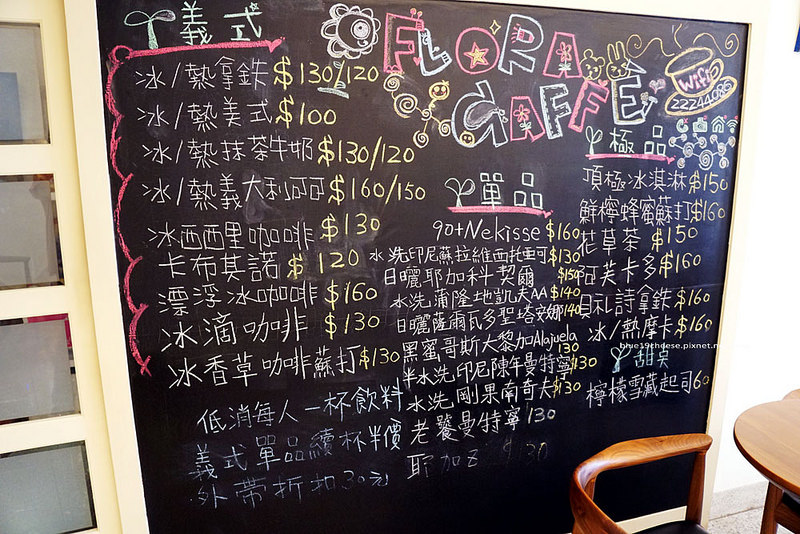 義式
冰/熱拿鉄 $130/120
冰/熱美式 $100
冰/熱抹茶牛奶 $130/120
冰/熱義大利可可 $160/150
冰西西里咖啡 $130
卡布其諾 $120
漂浮冰咖啡 $160
冰滴咖啡 $130
冰香草咖啡蘇打 $130
低消每人一杯飲料
義式單品續杯半價
外帶折扣30元
FLORA
CAFFE
wifi
22244086
單品
90+Nekisse $160
水洗印尼蘇拉維西托拉可 $130
日曬耶加科契爾 $150
水洗浦隆地凱夫AA $140
日曬薩爾瓦多聖塔安娜 140
黑蜜哥斯大黎加Alajuela 130
半水洗印尼陳年曼特寧 130
水洗剛果南奇夫 $130
老饕曼特寧 130
耶加 $130
極品
頂極冰淇淋 $150
鮮檸蜂蜜蘇打 $160
花草茶 $150
阿芙卡多 $160
貝礼詩拿鉄 $160
冰/熱摩卡 $160
甜点
檸檬雪藏起司 60
blue19cheese.pixnet.net